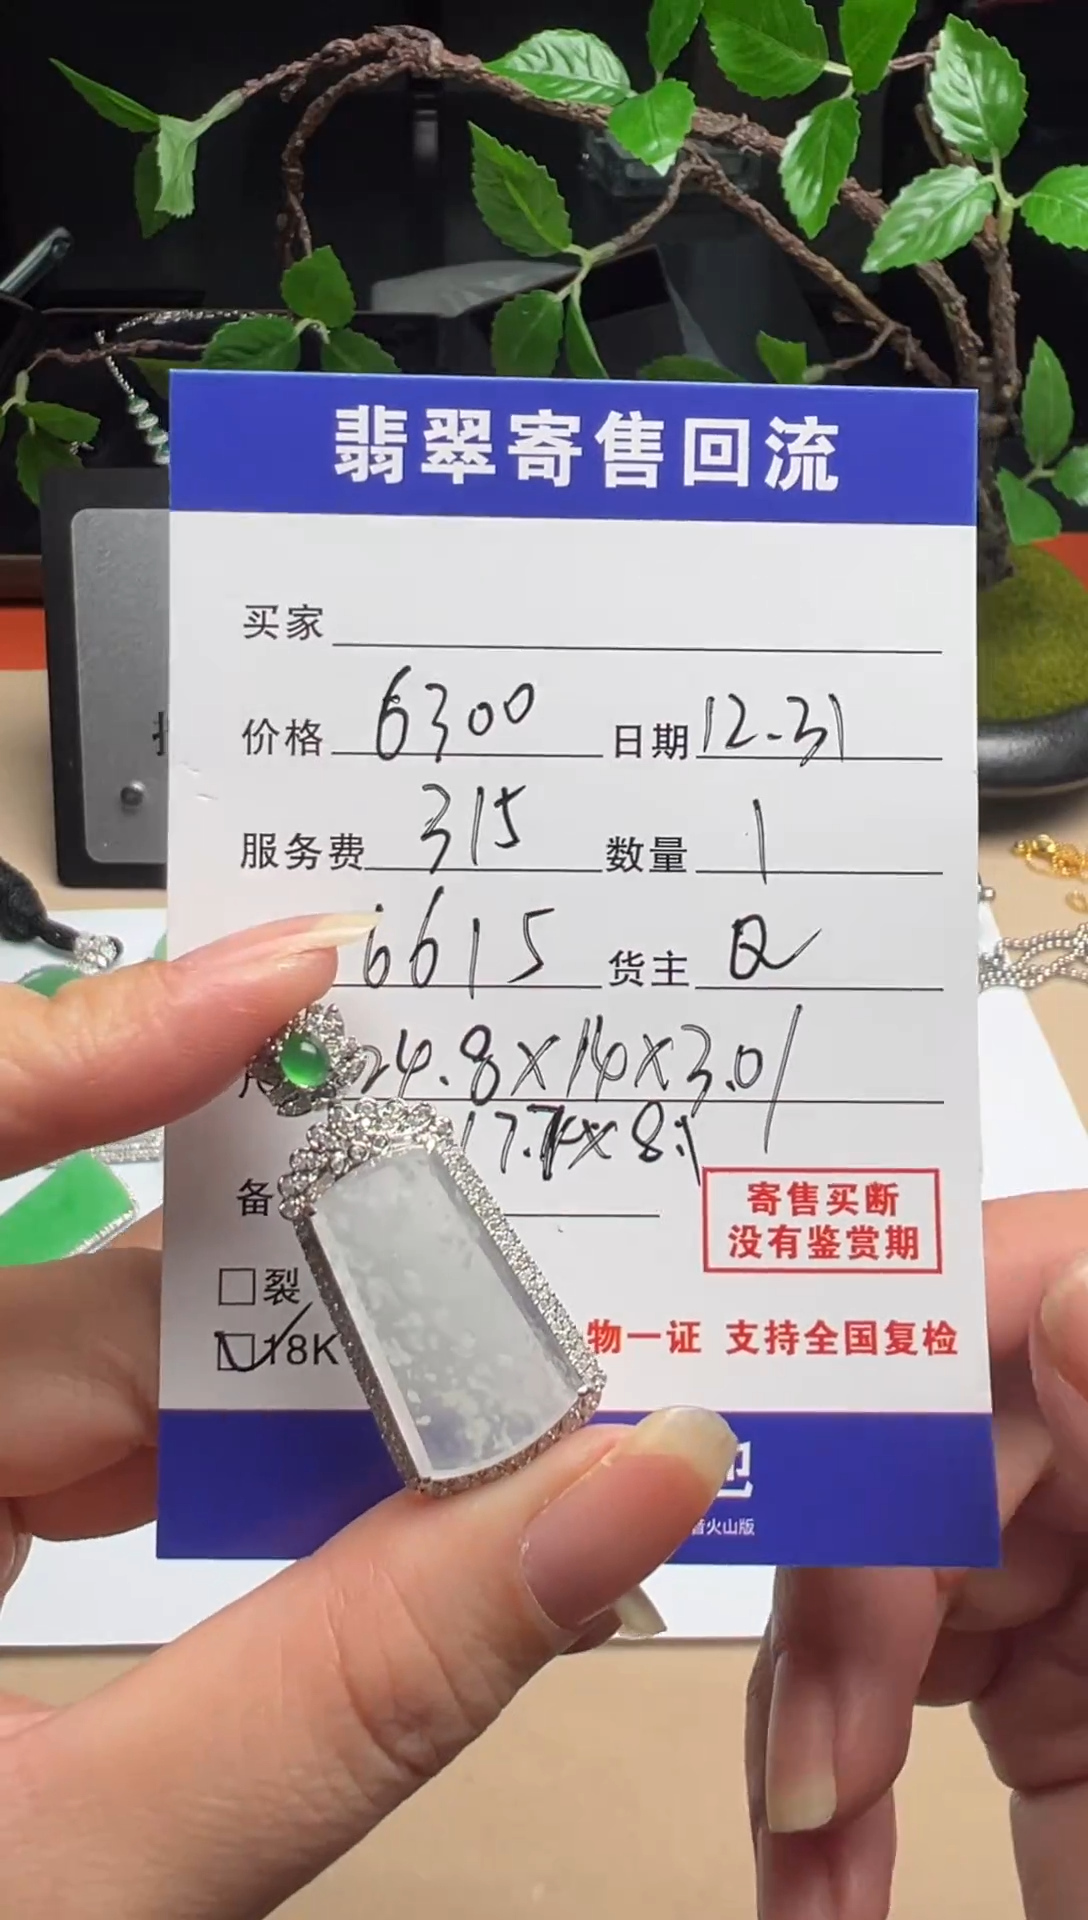 翡翠寄售回流
买家
价格 6300 日期 12-31
服务费 315 数量 1
6615 货主 Q
24.8×14×3.01
8.1
备
寄售买断
没有鉴赏期
□裂
☑18K
物一证 支持全国复检
音火山版